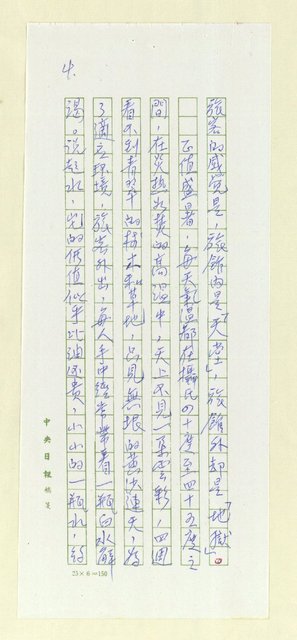 4.
旅客的感覺是，旅館內是「天堂」，旅館外却是「地獄」。
正值盛暑，每天氣溫都在攝氏四十度至四十五度之
間，在炎熱如焚的高溫中，天上不見一朵雲彩，四周
看不到青翠的樹木和草地，只見無垠的黃沙連天，為
了適應環境，旅客外出，每人手中經常帶着一瓶白水解
渴。說起水，它的價值似乎比油還貴，小小的一瓶水，約
中央日報稿箋
25×6＝150